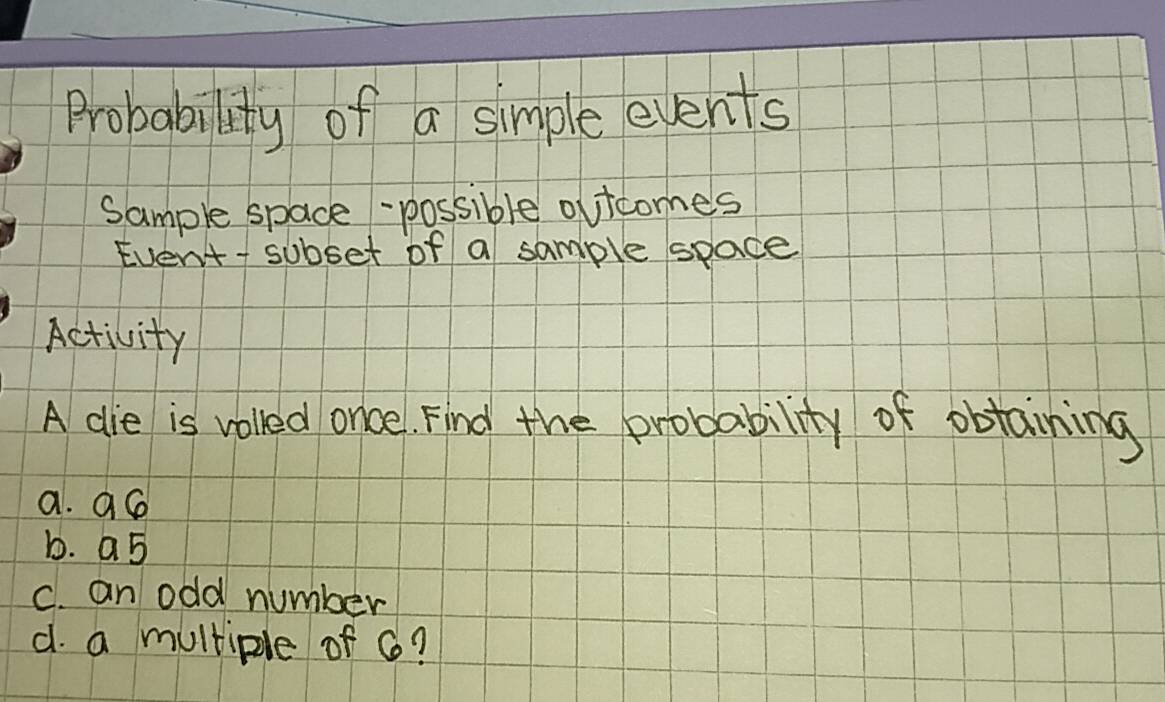 Probability of a simple events
Sample space - possible outcomes
Event - subset of a sample space
Activity
A die is rolled once. Find the probability of obtaining
a. a 6
b. a 5
c. an odd number
d. a multiple of 6?